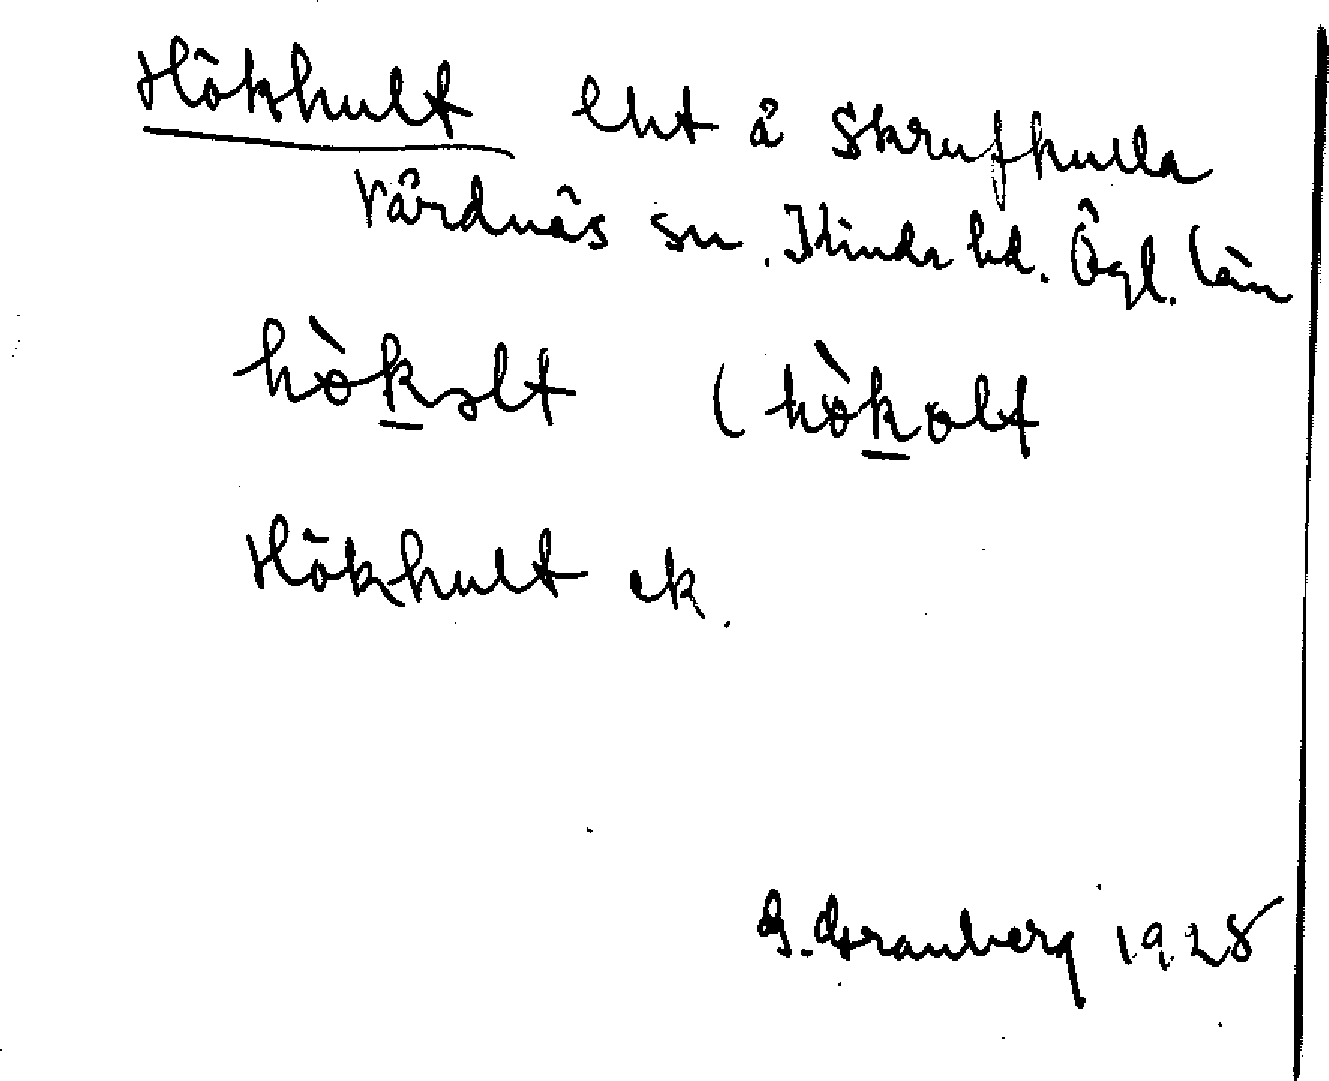 Hökhult lht å Skrufkulla
Vårdnäs sn. Kinda hd. Ögl. län
hö̀kəlt (hö̀kolt
Hökhult ek.
G. Granberg 1928